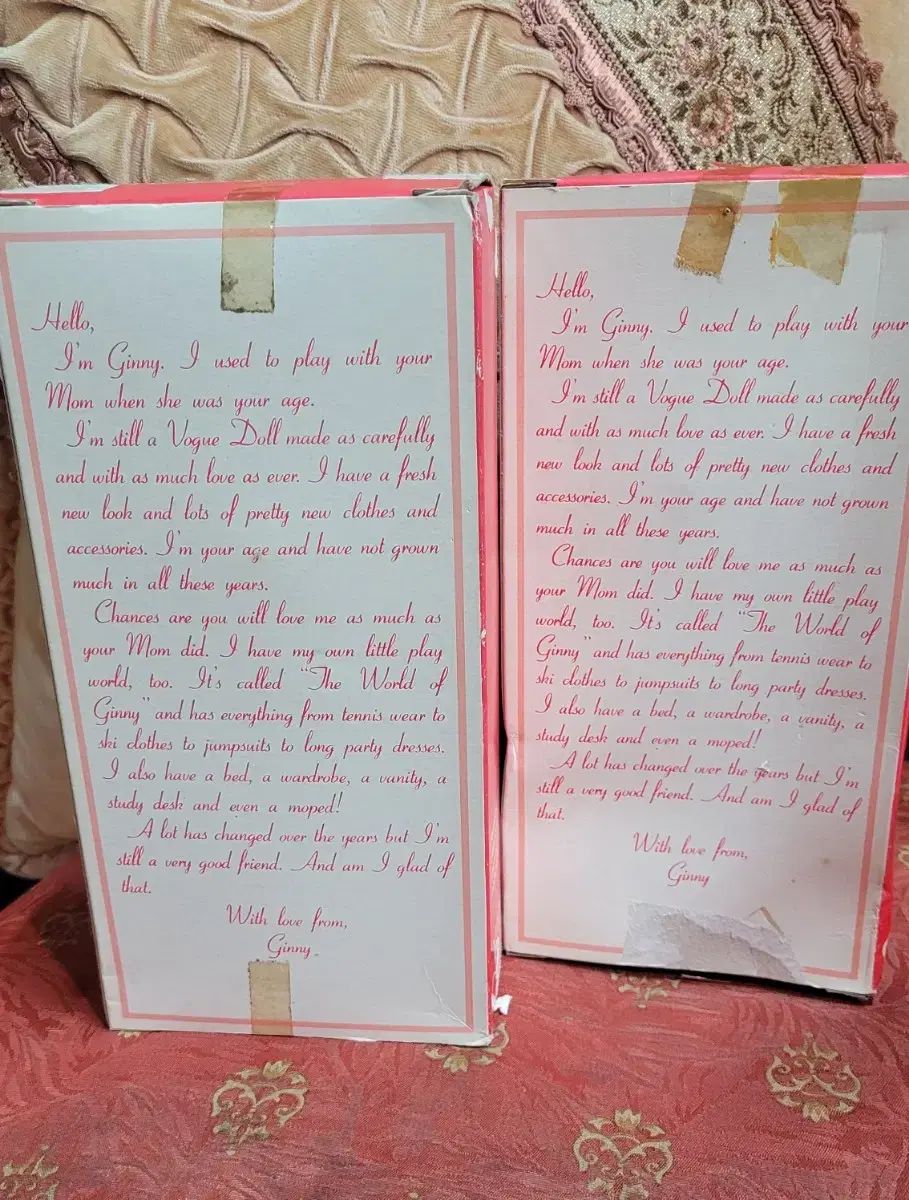 Hello,
I'm Ginny. I used to play with your
Mom when she was your age.
I'm still a Vogue Doll made as carefully
and with as much love as ever. I have a fresh
new look and lots of pretty new clothes and
accessories. I'm your age and have not grown
much in all these years.
Chances are you will love me as much as
your Mom did. I have my own little play
world, too. It's called "The World of
Ginny" and has everything from tennis wear to
ski clothes to jumpsuits to long party dresses.
I also have a bed, a wardrobe, a vanity, a
study desk and even a moped!
A lot has changed over the years but I'm
still a very good friend. And am I glad of
that.
With love from,
Ginny
Hello,
I'm Ginny. I used to play with your
Mom when she was your age.
I'm still a Vogue Doll made as carefully
and with as much love as ever. I have a fresh
new look and lots of pretty new clothes and
accessories. I'm your age and have not grown
much in all these years.
Chances are you will love me as much as
your Mom did. I have my own little play
world, too. It's called "The World of
Ginny" and has everything from tennis wear to
ski clothes to jumpsuits to long party dresses.
I also have a bed, a wardrobe, a vanity, a
study desk and even a moped!
A lot has changed over the years but I'm
still a very good friend. And am I glad of
that.
With love from,
Ginny